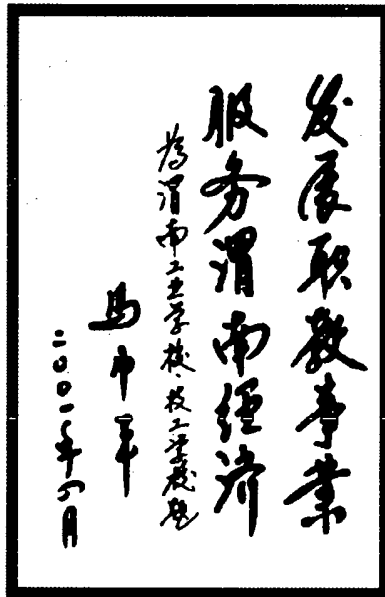 发展职教事业
服务渭南经济
为渭南工业学校、技工学校题
马中平
二〇〇一年四月